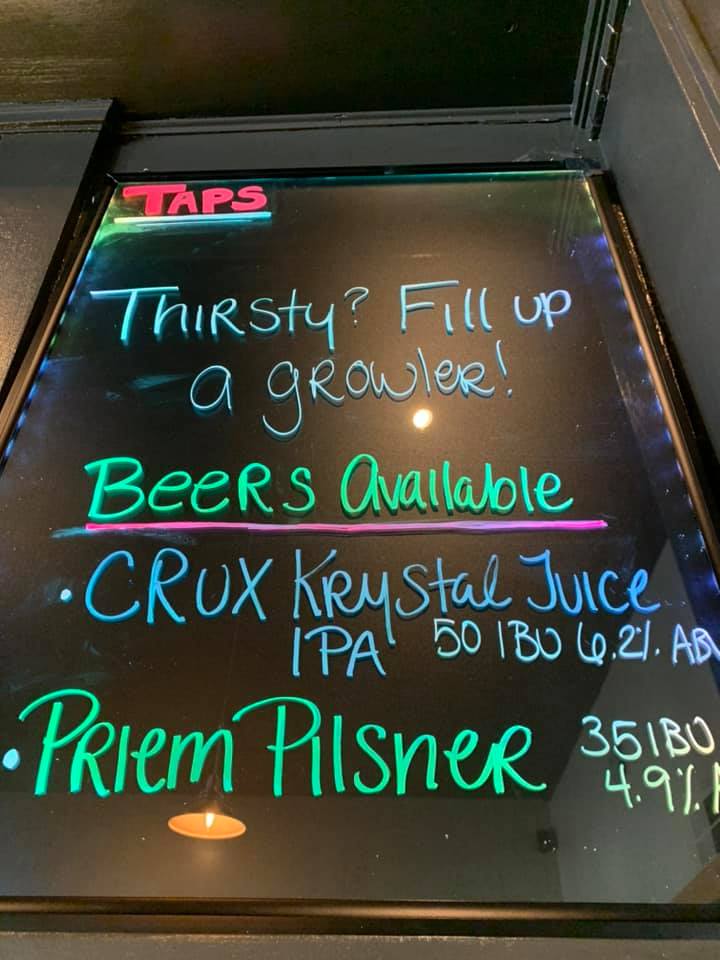 TAPS
Thirsty? Fill up
a growler!
Beers Available
• CRUX Krystal Juice
IPA 50 IBU 6.2%. AB
• Priem Pilsner 35 IBU
4.9%.